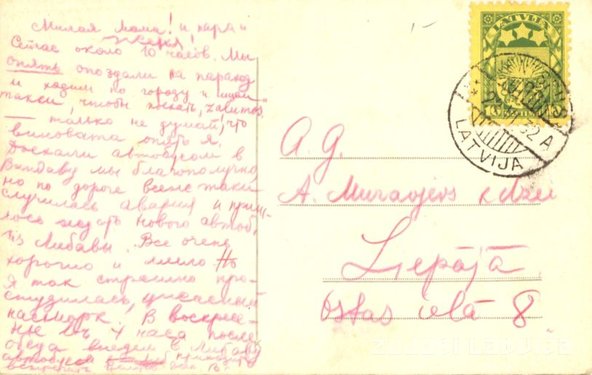 Милая мама! и папа и
Сейчас около 10 часов. Мы
опять опоздали на пароход
и ходим по городу и ищем
такси, чтобы поехать
— только не думай, что
виновата опять я.
Доехали автобусом в
Виндаву мы благополучно,
но по дороге всё же таки
случилась авария и приш-
лось ждать нового автоб.
из Либавы. Все очень
хорошо и мило. Но
я так страшно про-
студилась, ужасный
насморк. В воскресе-
нье в 4 часа после
обеда выедем в Либаву
автобусом
встречать
LATVIJA
LATVIJA
A. G.
A. Muravjevs k dzei
Liepājā
Ostas ielā 8